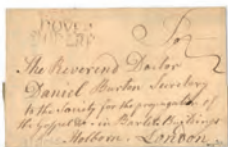 DOVER
To
The Reverend Doctor
Daniel Burton Secretary
to the Society for the propagation of
the Gospel &c in Bartlets Buildings
Holborn London